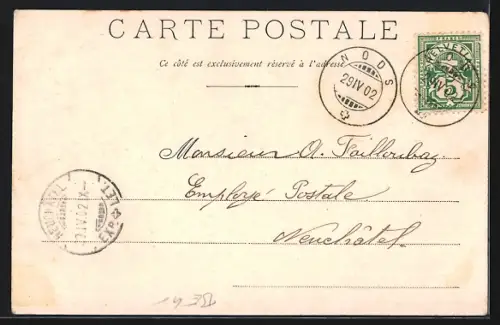 CARTE POSTALE
Ce côté est exclusivement réservé à l'adresse
NODS
29 IV 02
HELVETIA
5
Monsieur A. Failloubaz
Employé Postale
Neuchâtel.
NEUCHATEL
LETT. EXP.